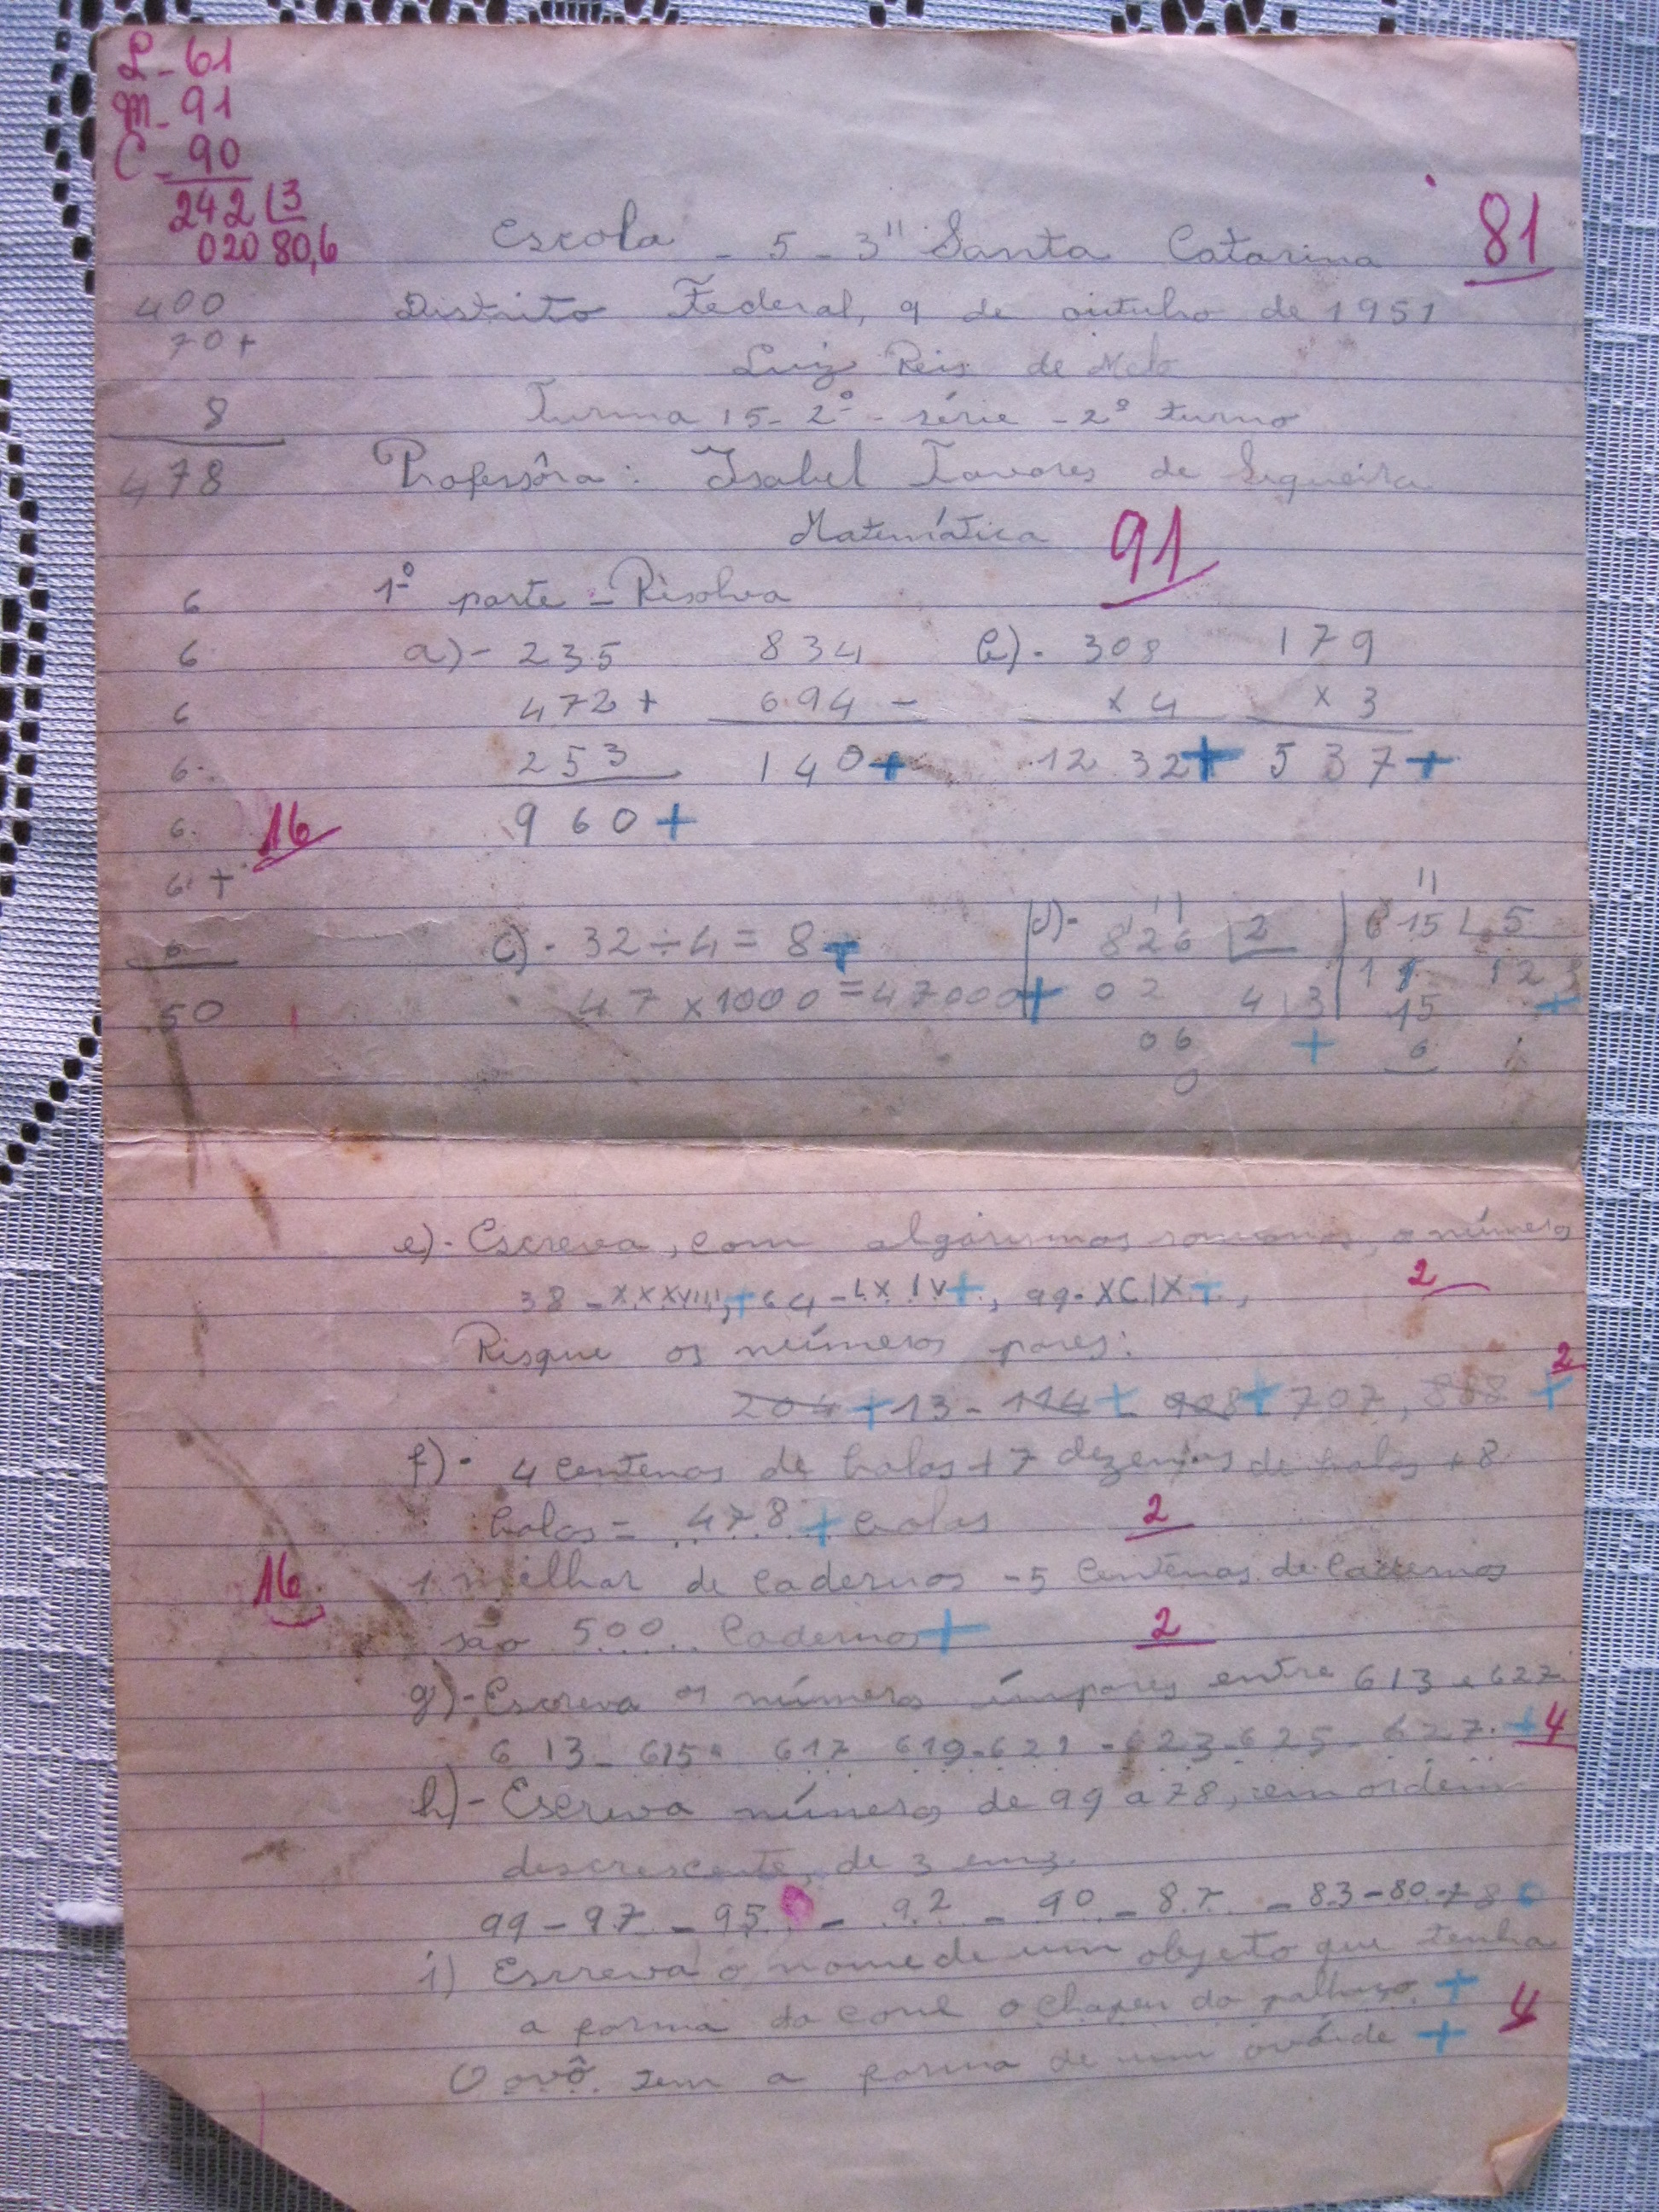 L - 61
M - 91
C - 90
242 | 3
020 80,6
81
Escola - 5 - 3 " Santa Catarina
Distrito Federal, 9 de outubro de 1951
Luiz Reis de Melo
Turma 15 - 2º - série - 2º turno
Professôra: Isabel Tavares de Siqueira
Matemática 91
400
70+
8
478
1º parte - Resolva
a) - 235 834 b) - 308 179
472 + 694 - x 4 x 3
253 140 + 1232 + 537 +
960 +
6
6
6
6
6
6 +
6
50
16
c) - 32 ÷ 4 = 8 + d) - 826 | 2 615 | 5
47 x 1000 = 47000 + 02 413 11 123
06 + 15 +
0 0
e) - Escreva, com algarismos romanos, o número
38 - XXXVIII, + 64 - LXIV +, 99 - XCIX +, 2
Risque os números pares:
204 + 13 - 114 + - 908 + 707, 888 + 2
f) - 4 centenas de bolas + 7 dezenas de bolas + 8
bolas = 478 + bolas 2
16
1 milhar de cadernos - 5 centenas de cadernos
são 500 cadernos + 2
g) - Escreva os números ímpares entre 613 e 627
613 - 615 - 617 619 - 621 - 623 - 625 - 627. + 4
h) - Escreva números de 99 a 78, em ordem
descrescente, de 3 em 3.
99 - 97 - 95 - 92 - 90 - 87 - 83 - 80 - 78
i) Escreva o nome de um objeto que tenha
a forma do cone o chapeu do palhaço. +
O ovô tem a forma de um ovóide + 4